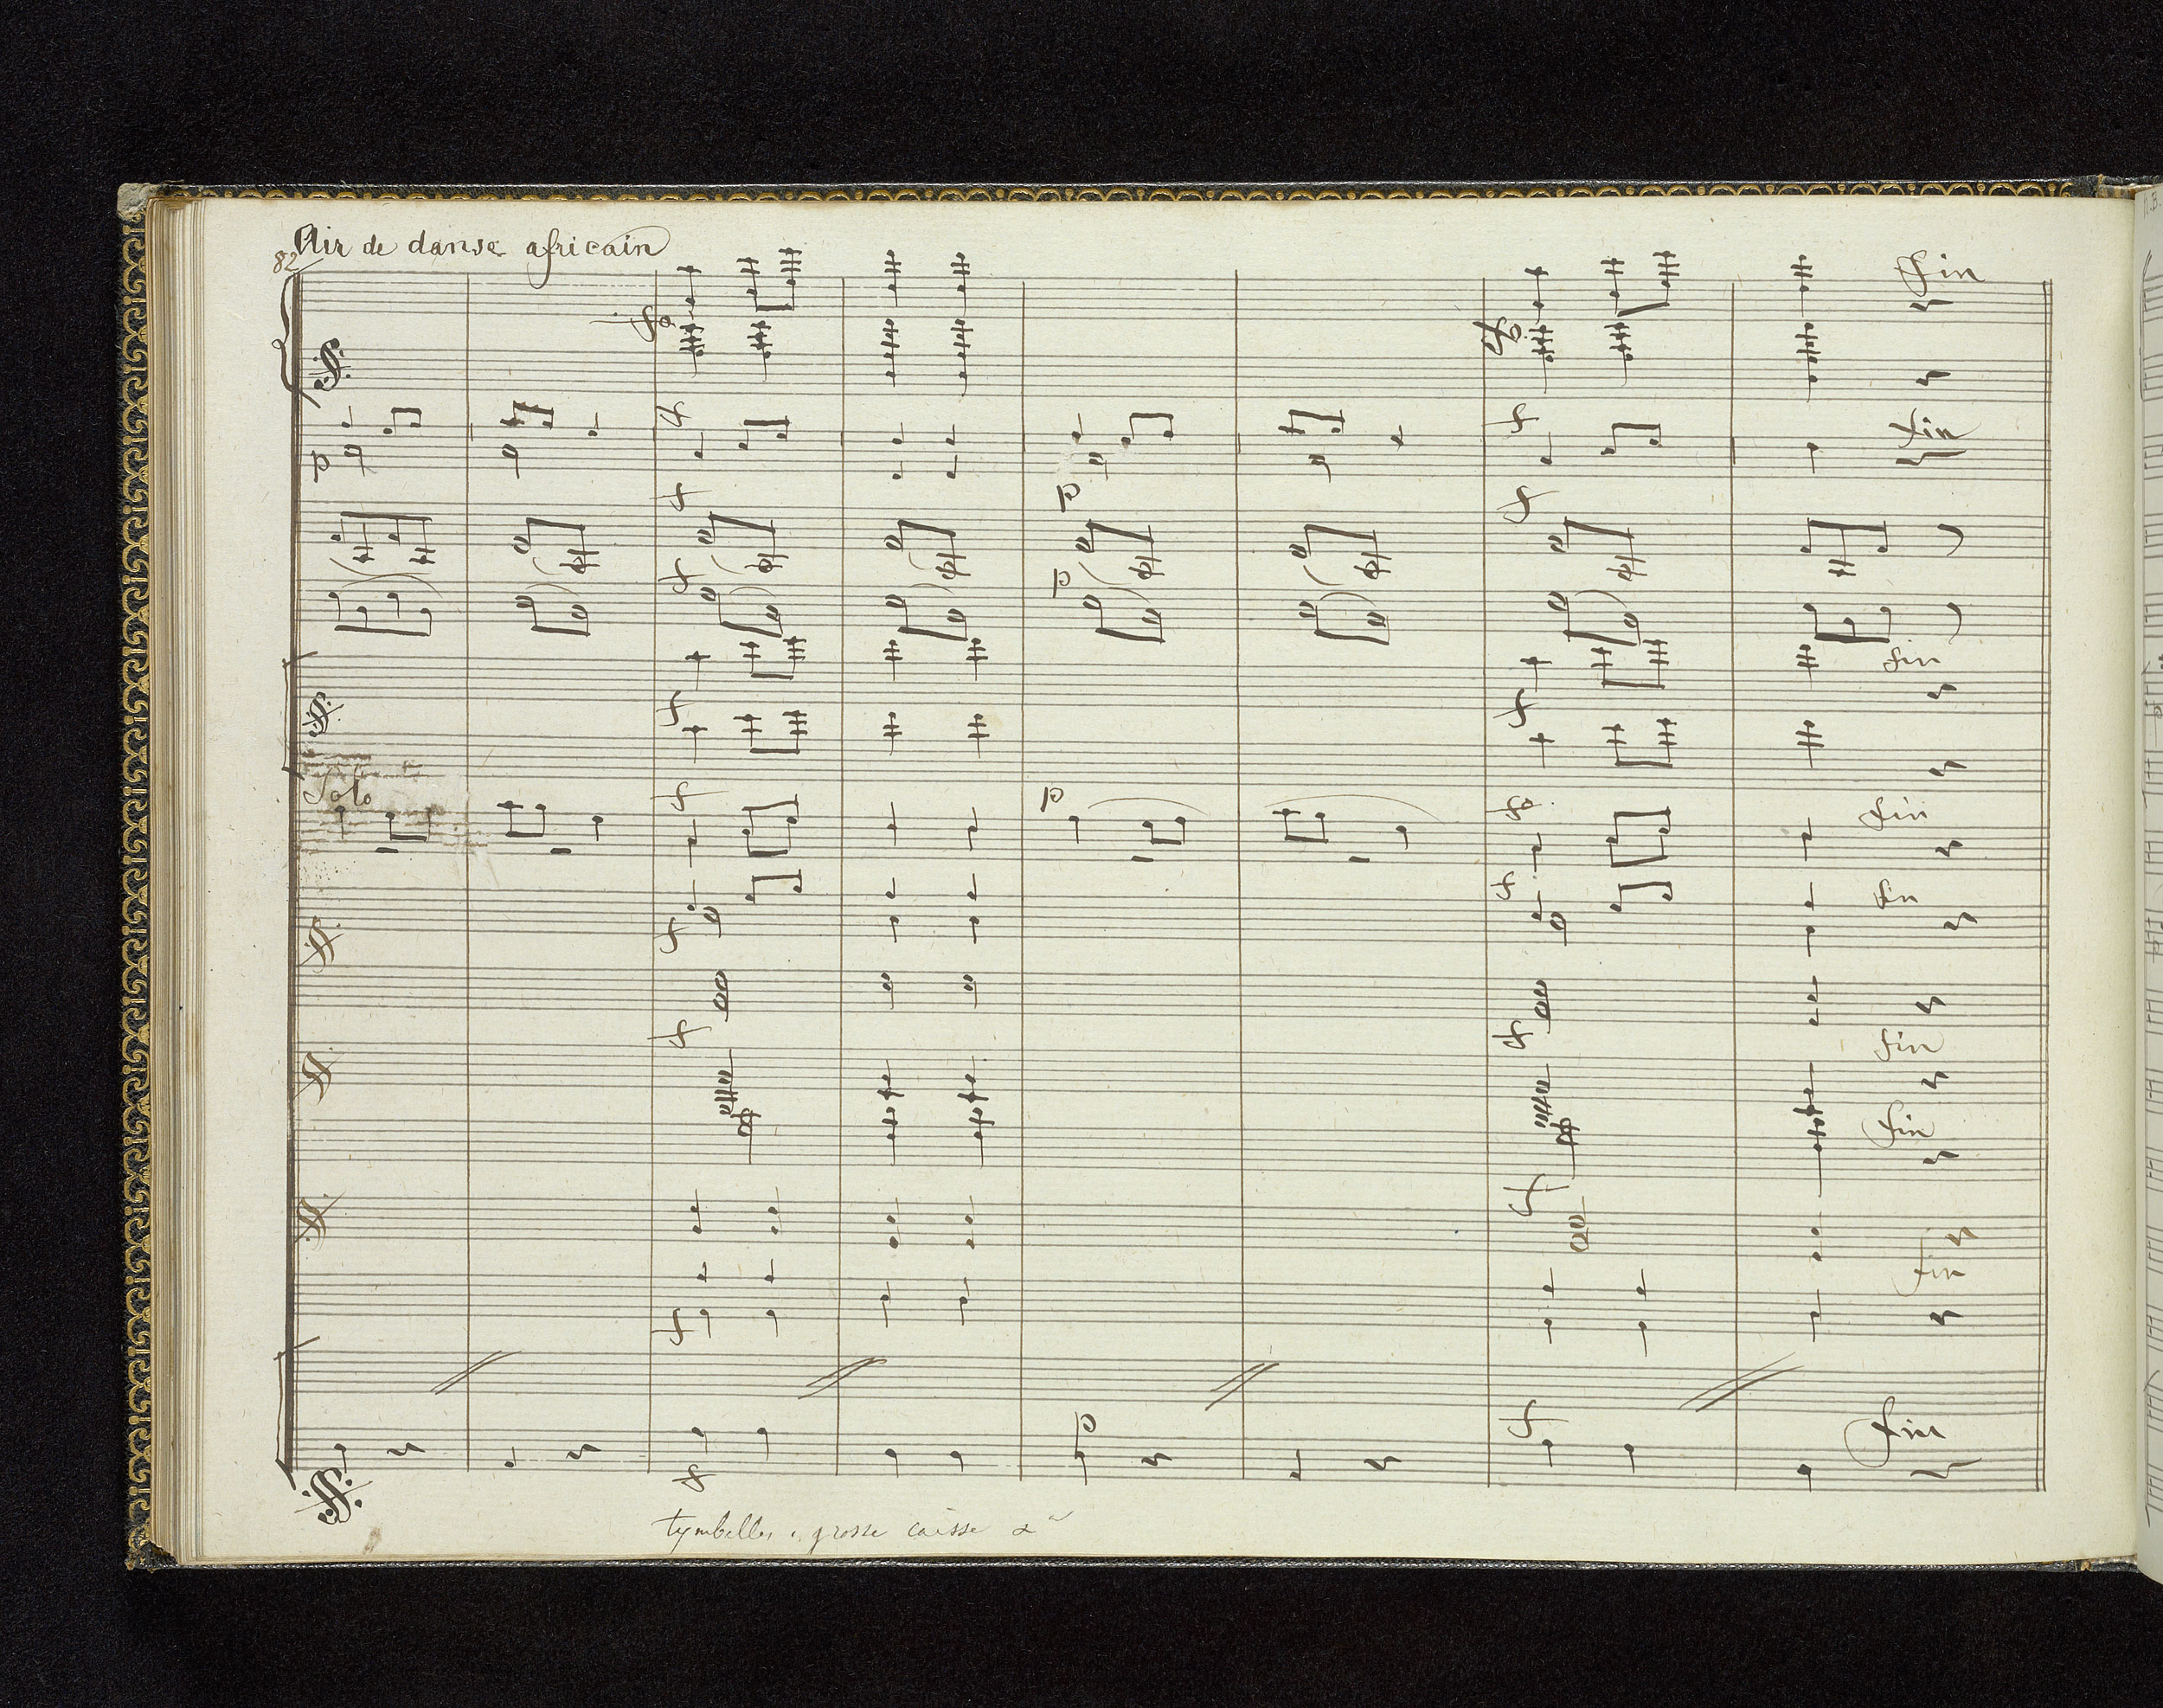 Air de danse africain
82
fo
Fin
fo
f
f
fin
p
f
p
f
f
p
fin
f
f
Solo
f
p
fo
fin
f
f
fin
f
f
fin
fin
f
fin
f
p
f
fin
f
tymbelles, grosse caisse
n.B.